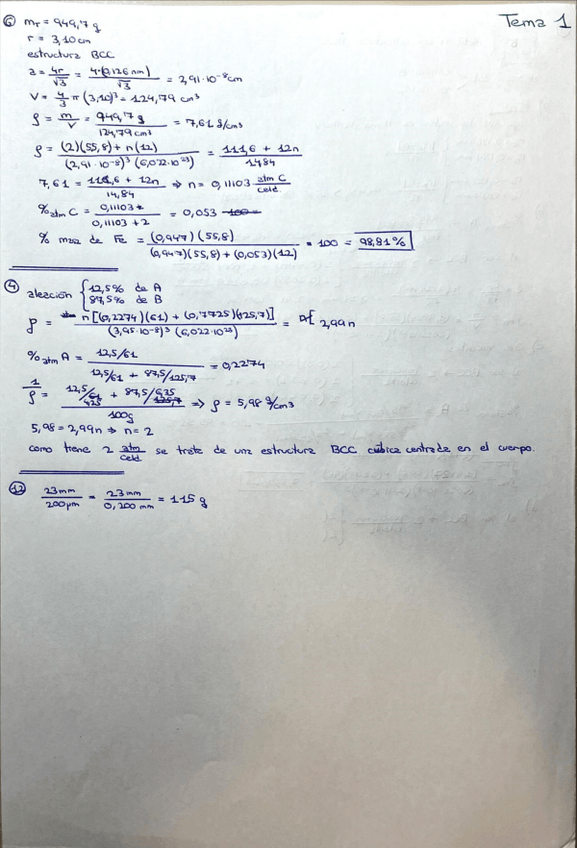 Tema 1
⑥ mT = 949,7 g
r = 3,10 cm
estructura BCC
a = 4r/√3 = 4·(0,126 nm)/√3 = 2,91·10⁻⁸ cm
V = 4/3 π (3,10)³ = 124,79 cm³
ρ = m/V = 949,7 g/124,79 cm³ = 7,61 g/cm³
ρ = (2)(55,8) + n(12)/(2,91·10⁻⁸)³ (6,022·10²³) = 111,6 + 12n/14,84
7,61 = 111,6 + 12n/14,84 ⇒ n = 0,11103 atm C/celd
% atm C = 0,11103/0,11103 + 2 = 0,053
% masa de Fe = (0,947)(55,8)/(0,947)(55,8) + (0,053)(12) · 100 = 98,81%
④ aleación { 12,5% de A
87,5% de B
ρ = n[(0,2274)(61) + (0,7725)(125,7)]/(3,95·10⁻⁸)³ (6,022·10²³) = 2,99n
% atm A = 12,5/61/12,5/61 + 87,5/125,7 = 0,2274
1/ρ = 12,5/4,25 + 87,5/6,35/100g ⇒ ρ = 5,98 g/cm³
5,98 = 2,99n ⇒ n = 2
como tiene 2 atm/celd se trata de una estructura BCC cúbica centrada en el cuerpo.
⑫ 23 mm/200 μm = 23 mm/0,200 mm = 115 g